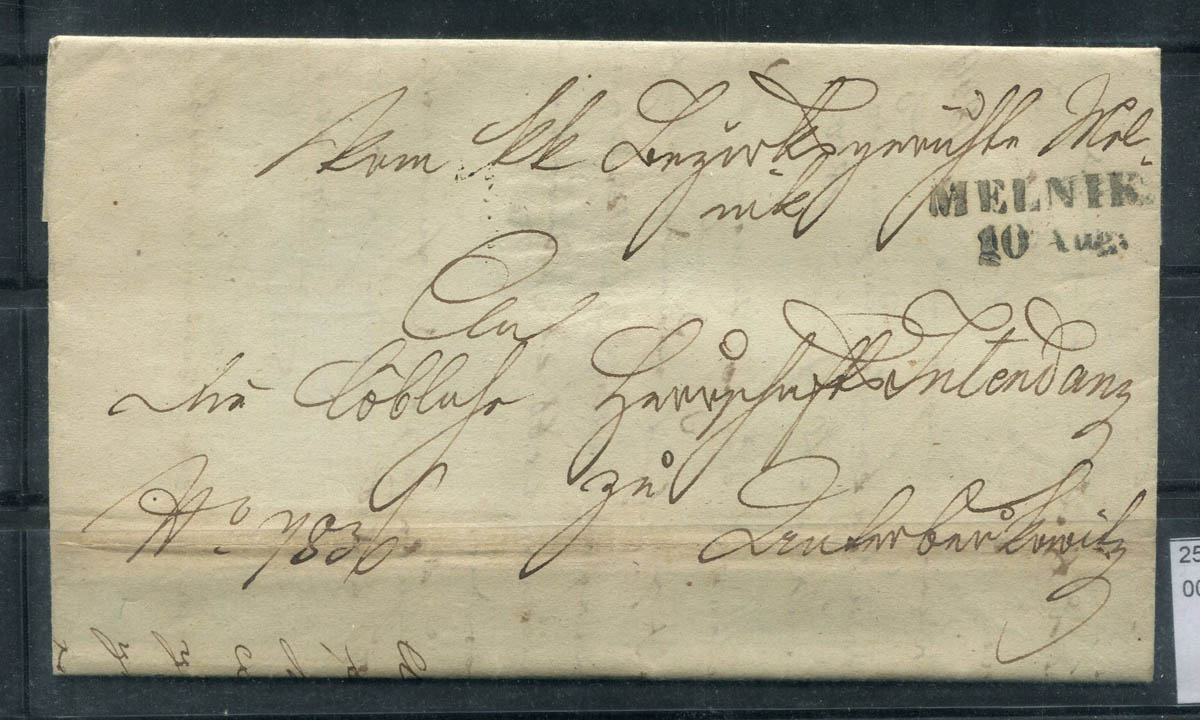 Vom kk Bezirksgerichte Mel-
nik
MELNIK
10 Aug:
An
die löbliche Herrschafts Intendanz
zu
No 7836
Unterberkowitz
25
00